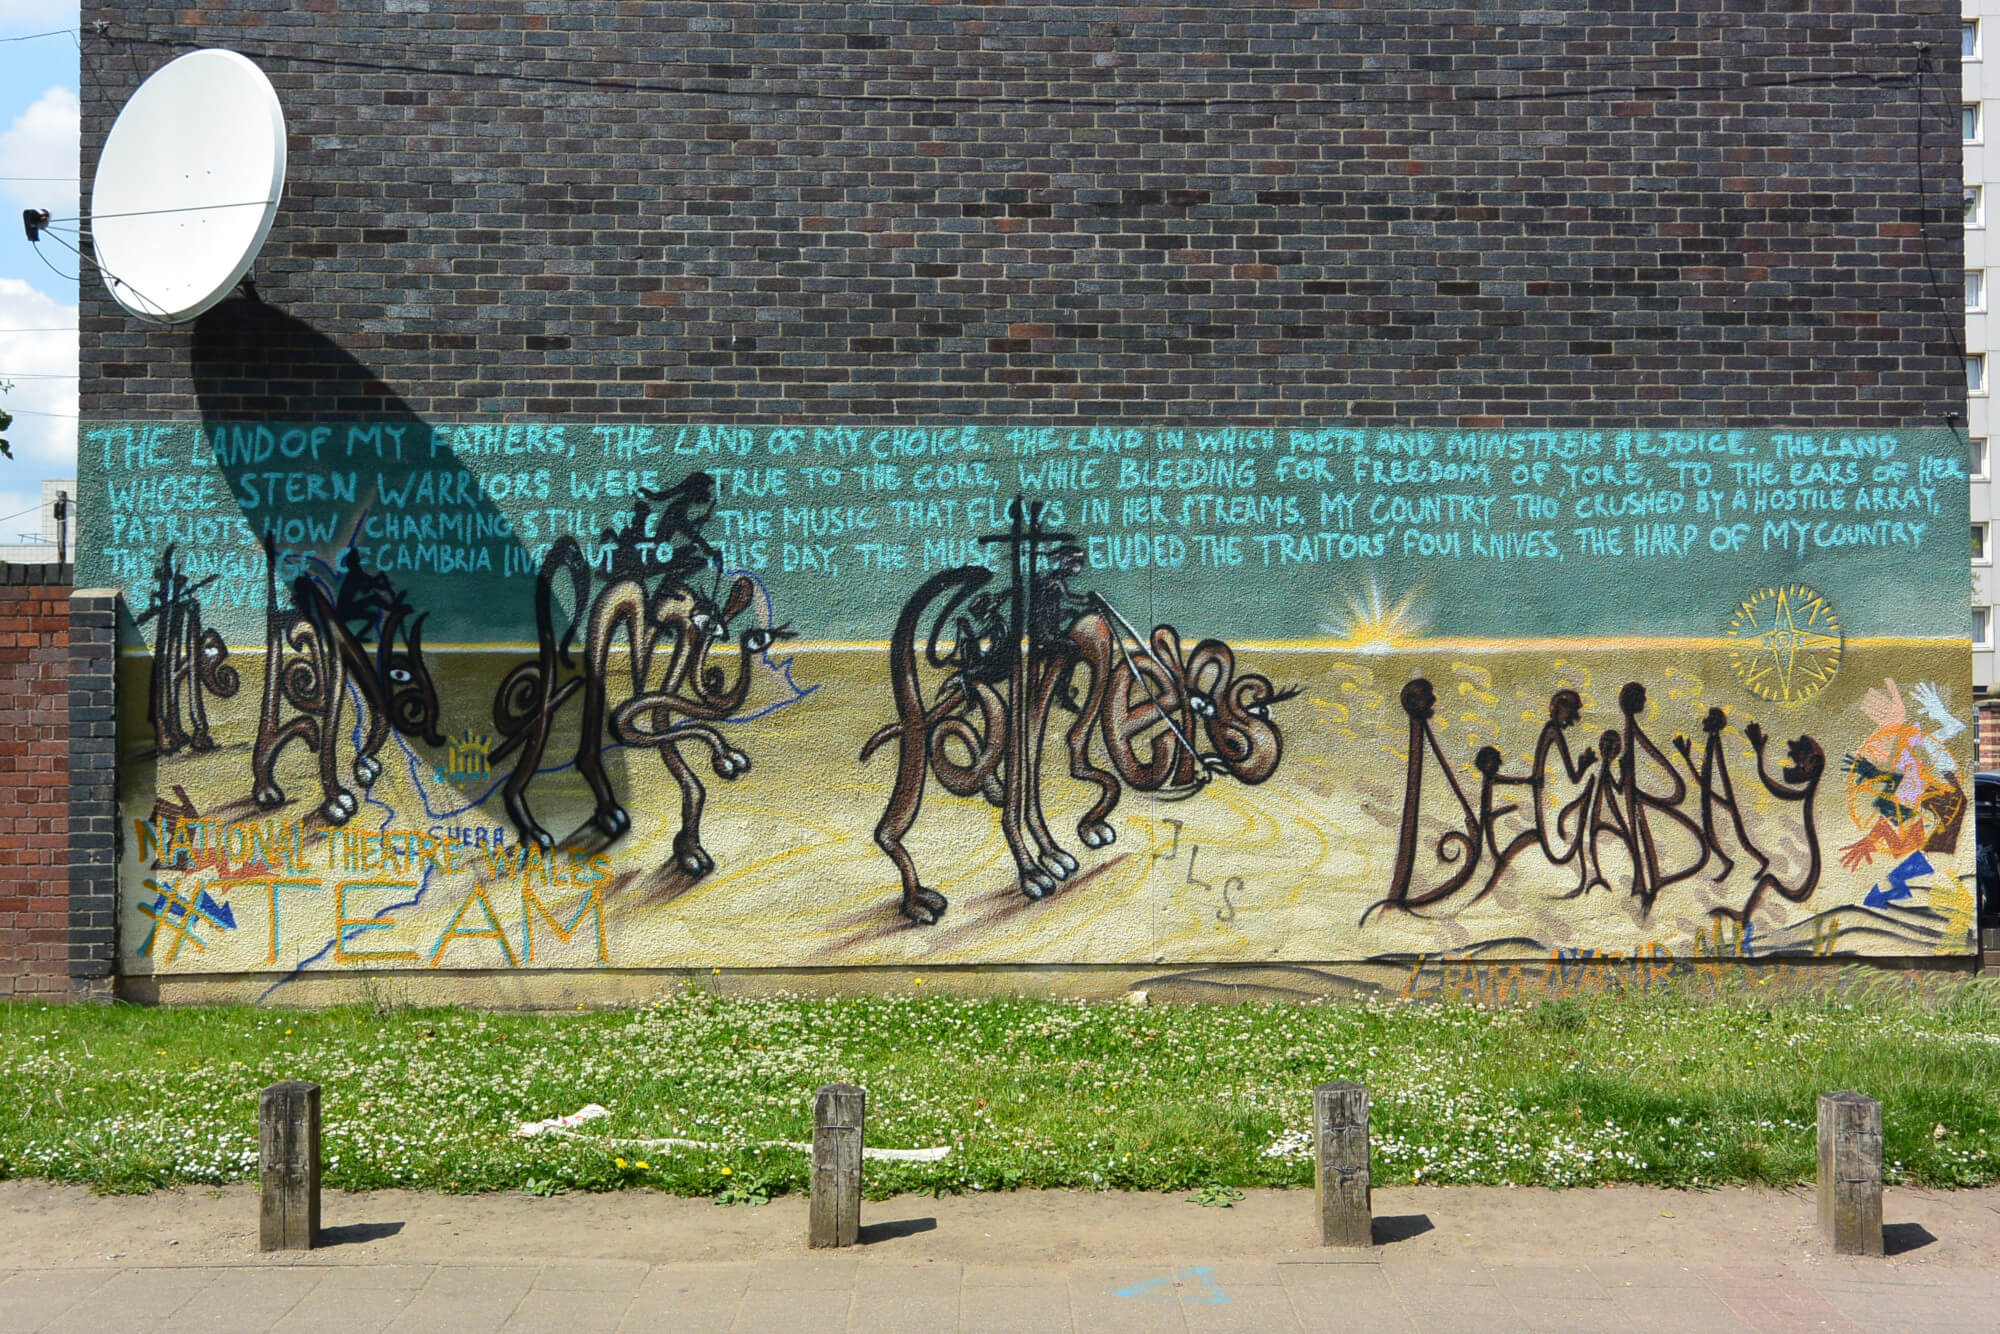 THE LAND OF MY FATHERS, THE LAND OF MY CHOICE. THE LAND IN WHICH POETS AND MINSTRELS REJOICE. THE LAND
WHOSE STERN WARRIORS WERE TRUE TO THE CORE, WHILE BLEEDING FOR FREEDOM OF YORE, TO THE EARS OF HER
PATRIOTS HOW CHARMING STILL THE MUSIC THAT FLOWS IN HER STREAMS. MY COUNTRY THO' CRUSHED BY A HOSTILE ARRAY,
THE LANGUAGE OF CAMBRIA LIVE OUT TO THIS DAY, THE MUSE HAS ELUDED THE TRAITORS' FOUL KNIVES, THE HARP OF MY COUNTRY
SURVIVES
THE LAND OF MY FATHERS
DEGABAY
JLS
SHERA
NATIONAL THEATRE WALES
#TEAM
LIAM NASIR